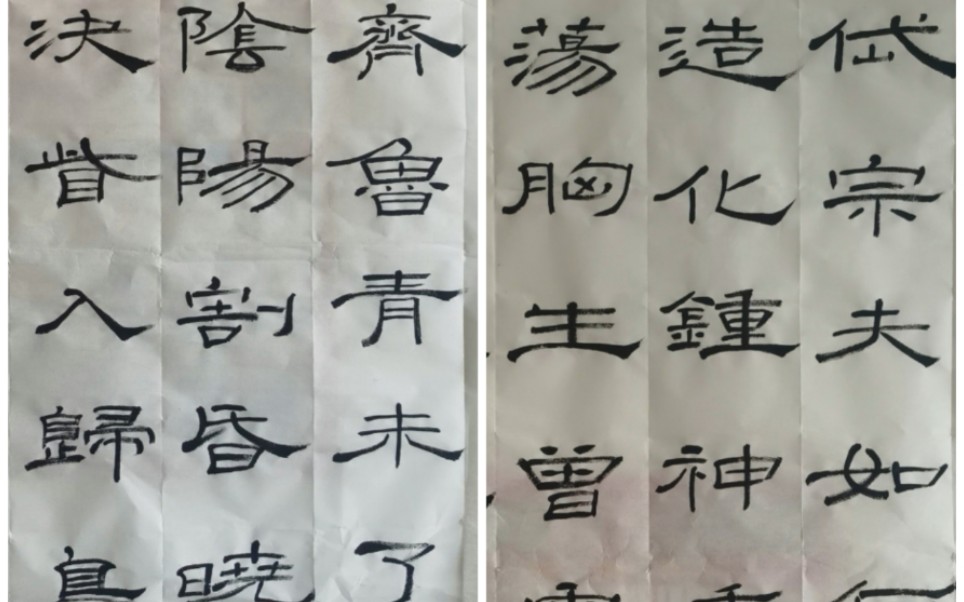 岱宗夫如何
造化鍾神秀
蕩胸生曾雲
齊魯青未了
陰陽割昏曉
決眥入歸鳥